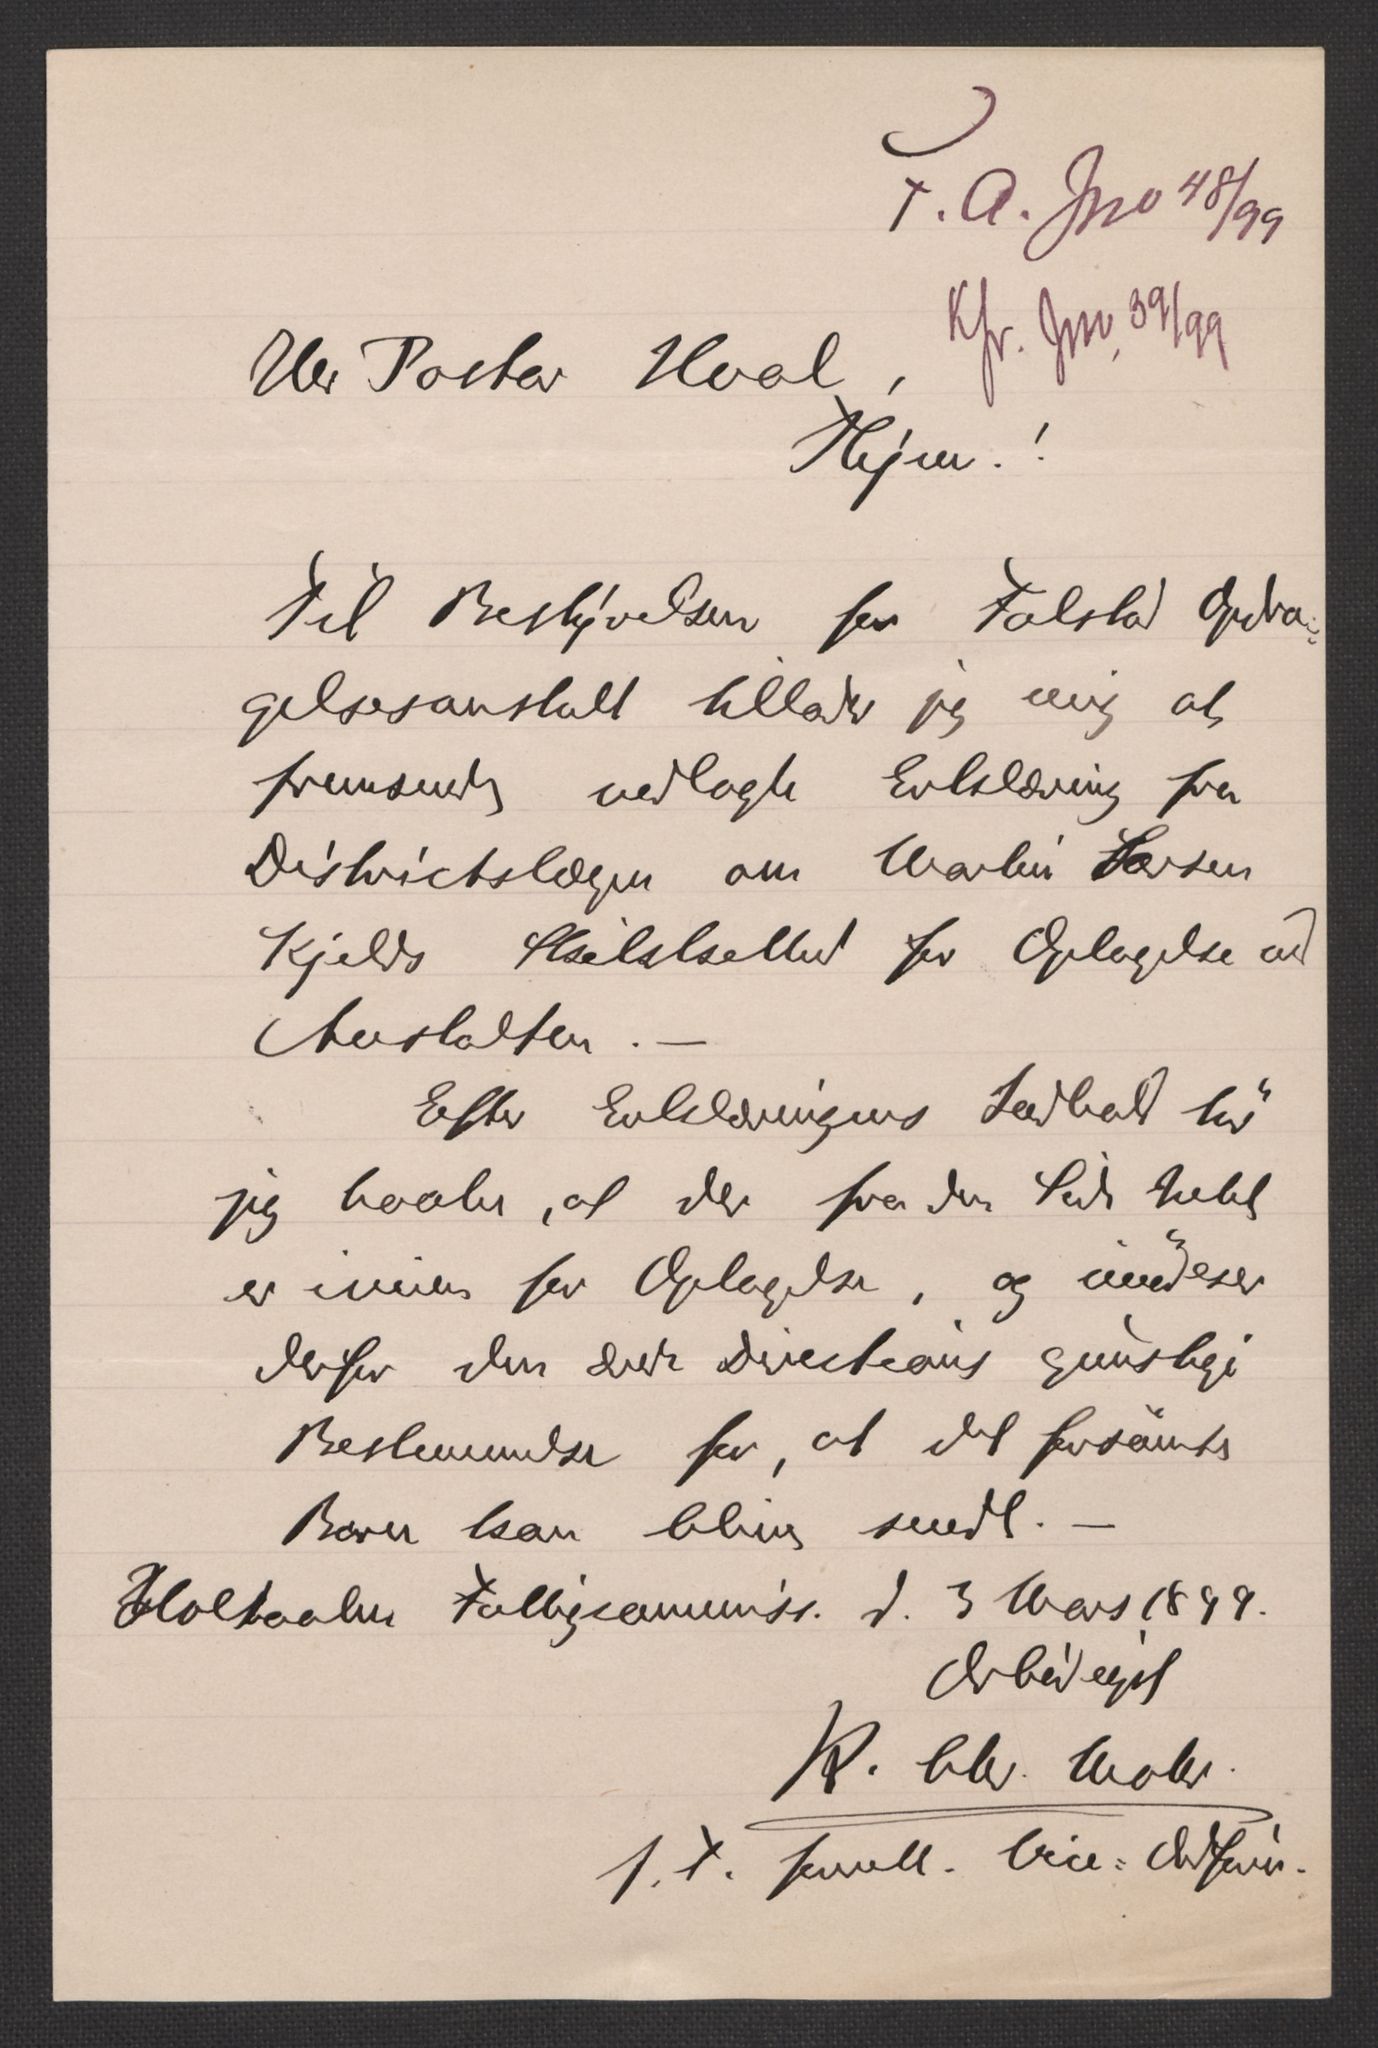 F. A. Jno 48/99
Kfr. Jno. 39/99
Hr Pastor Hval,
Til Bestyrelsen for Falstad Opdra-
gelsesanstalt tillader jeg mig at
fremsende vedlagte Erklæring fra
Districtslægen om Martin Larsen
Kjelds Skikkethed for Optagelse ved
Anstalten. —
Efter Erklæringens Indhold tør
jeg haabe, at der fra den Side Intet
er iveien for Optagelse, og imødeser
derfor den ærede Directions gunstige
Bestemmelse for, at det forsømte
Barn kan blive sendt. —
Holtaalen Fattigcommiss. d. 3 Mars 1899.
Ærbødigst
K. Chr. Mohr.
p. t. Vice-Ordfører.